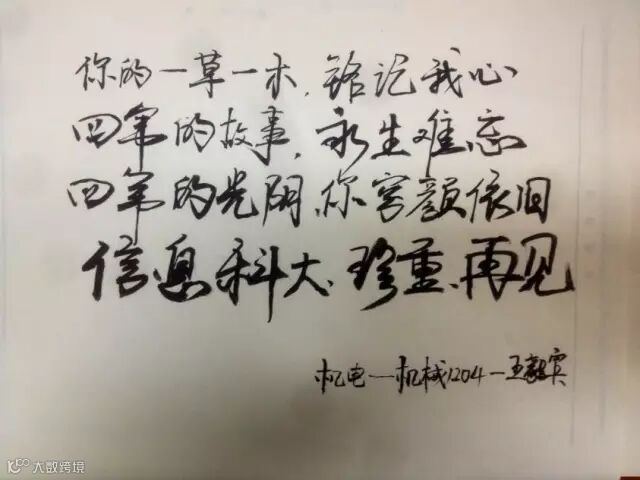 你的一草一木,铭记我心
四年的故事,永生难忘
四年的光阴,你容颜依旧
信息科大、珍重、再见
机电一机械1204一王毅实
大数跨境